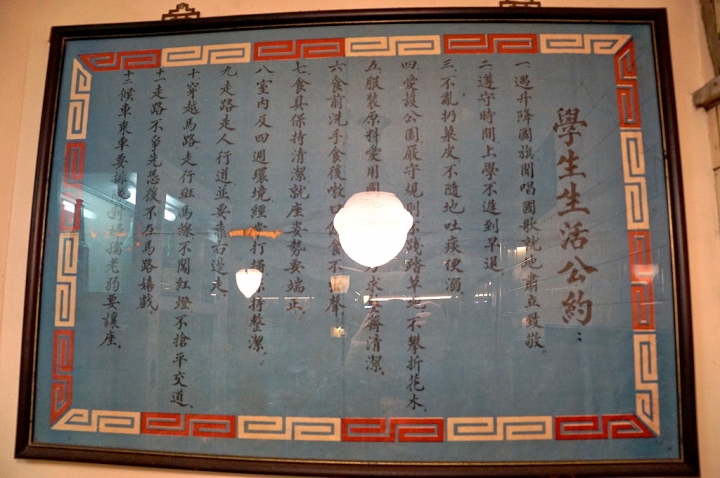 學生生活公約：
一.遇升降國旗聞唱國歌就地肅立致敬.
二.遵守時間上學不遲到早退.
三.不亂扔菓皮不隨地吐痰便溺
四.愛護公園嚴守規則踐踏草地不攀折花木.
五.服裝原料愛用國力求整齊清潔.
六.食前洗手食後嗽口食不出聲.
七.食具保持清潔就座姿勢要端正.
八.室内及四週環境經常打掃保持整潔.
九.走路走人行道並要靠右邊走.
十.穿越馬路走行斑馬線不闖紅燈不搶平交道.
十一.走路不爭先恐後不在馬路嬉戲.
十二.候車乘車要排隊老弱要讓座.